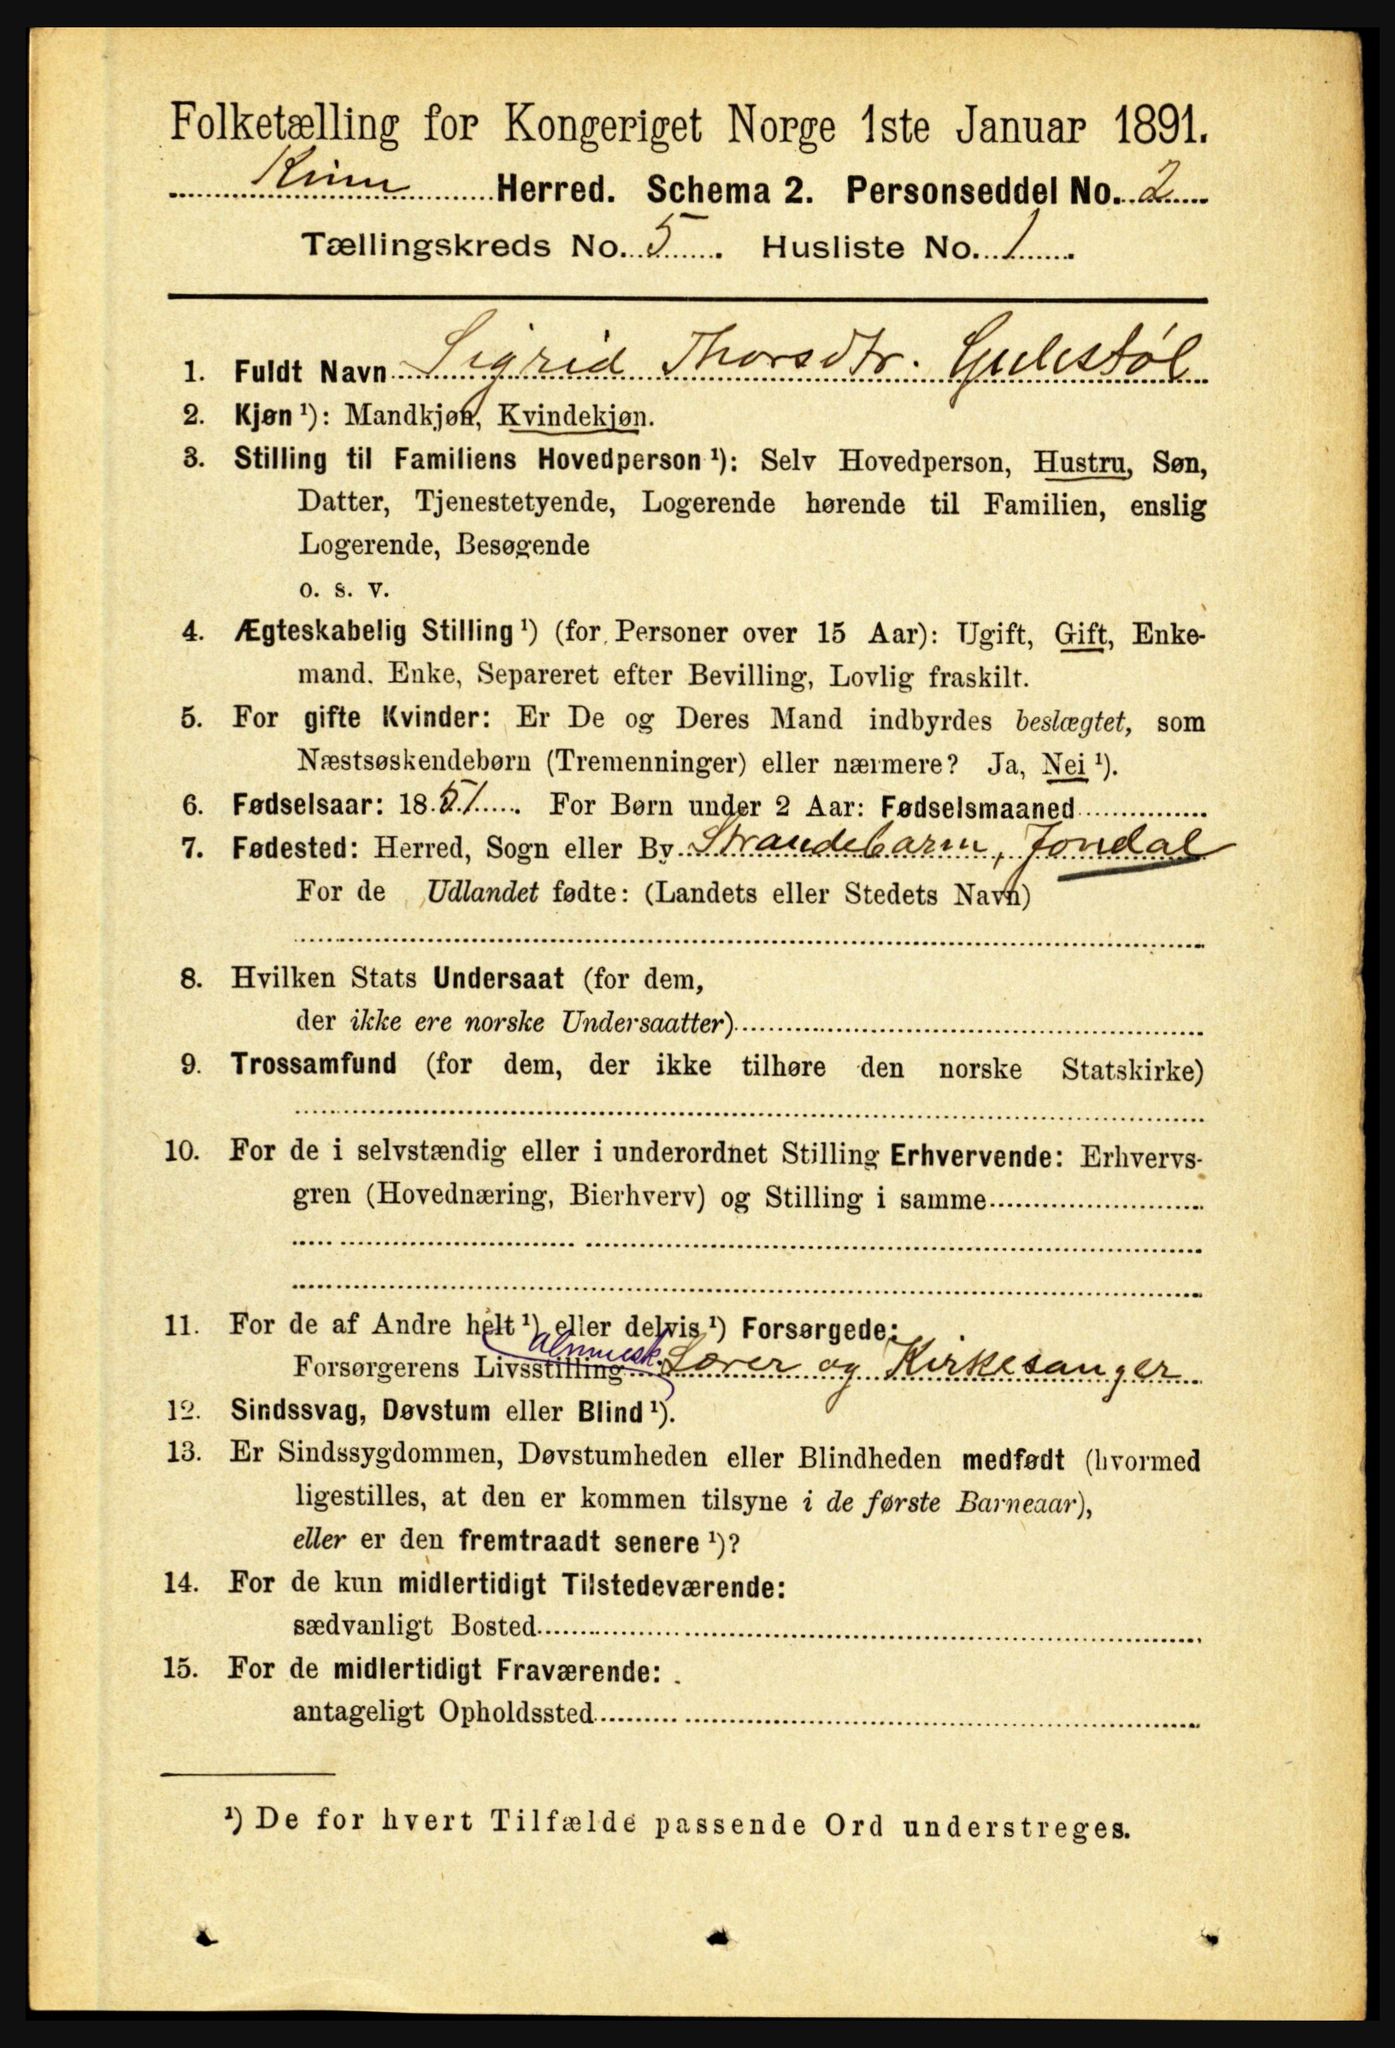 Folketælling for Kongeriget Norge 1ste Januar 1891.
Kinn Herred. Schema 2. Personseddel No. 2
Tællingskreds No. 5. Husliste No. 1.
1. Fuldt Navn Sigrid Thorsdtr. Gulestøl
2. Kjøn ¹): Mandkjøn, Kvindekjøn.
3. Stilling til Familiens Hovedperson ¹): Selv Hovedperson, Hustru, Søn,
Datter, Tjenestetyende, Logerende hørende til Familien, enslig
Logerende, Besøgende
o. s. v.
4. Ægteskabelig Stilling ¹) (for Personer over 15 Aar): Ugift, Gift, Enke-
mand. Enke, Separeret efter Bevilling, Lovlig fraskilt.
5. For gifte Kvinder: Er De og Deres Mand indbyrdes beslægtet, som
Næstsøskendebørn (Tremenninger) eller nærmere? Ja, Nei ¹).
6. Fødselsaar: 1851. For Børn under 2 Aar: Fødselsmaaned
7. Fødested: Herred, Sogn eller By Strandebarm, Jondal
For de Udlandet fødte: (Landets eller Stedets Navn)
8. Hvilken Stats Undersaat (for dem,
der ikke ere norske Undersaatter)
9. Trossamfund (for dem, der ikke tilhøre den norske Statskirke)
10. For de i selvstændig eller i underordnet Stilling Erhvervende: Erhvervs-
gren (Hovednæring, Bierhverv) og Stilling i samme
11. For de af Andre helt ¹) eller delvis ¹) Forsørgede:
Forsørgerens Livsstilling Almuesk. Lærer og Kirkesanger
12. Sindssvag, Døvstum eller Blind ¹).
13. Er Sindssygdommen, Døvstumheden eller Blindheden medfødt (hvormed
ligestilles, at den er kommen tilsyne i de første Barneaar),
eller er den fremtraadt senere ¹)?
14. For de kun midlertidigt Tilstedeværende:
sædvanligt Bosted
15. For de midlertidigt Fraværende:
antageligt Opholdssted
¹) De for hvert Tilfælde passende Ord understreges.